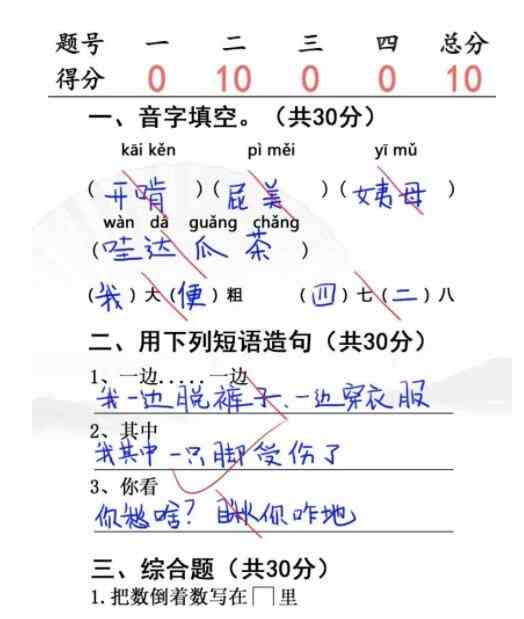 题号 一 二 三 四 总分
得分 0 10 0 0 10
一、音字填空。（共30分）
kāi kěn pì měi yī mǔ
（开啃）（屁美）（姨母）
wàn dá guǎng chǎng
（哇达瓜茶）
（我）大（便）粗 （四）七（二）八
二、用下列短语造句（共30分）
1、一边.....一边
我一边脱裤子.一边穿衣服
2、其中
我其中一只脚受伤了
3、你看
你愁啥？瞅你咋地
三、综合题（共30分）
1.把数倒着数写在□里